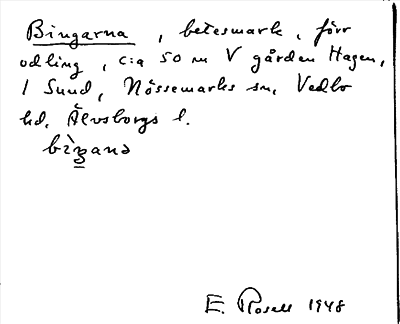 Bingarna, betesmark, förr
odling, c:a 50 m V gården Hagen,
1 Sund, Nössemarks sn, Vedbo
hd, Älvsborgs l.
bìŋana
E. Rosell 1948